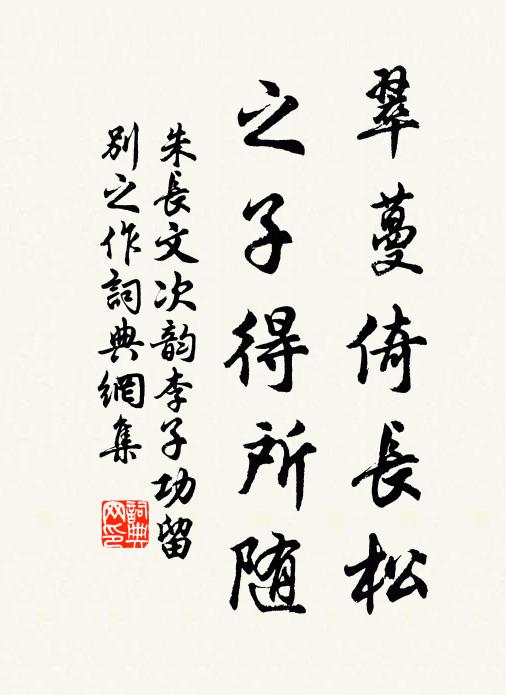 翠蔓倚長松
之子得所随
朱長文次韵李子功留
别之作詞典網集
詞典网印